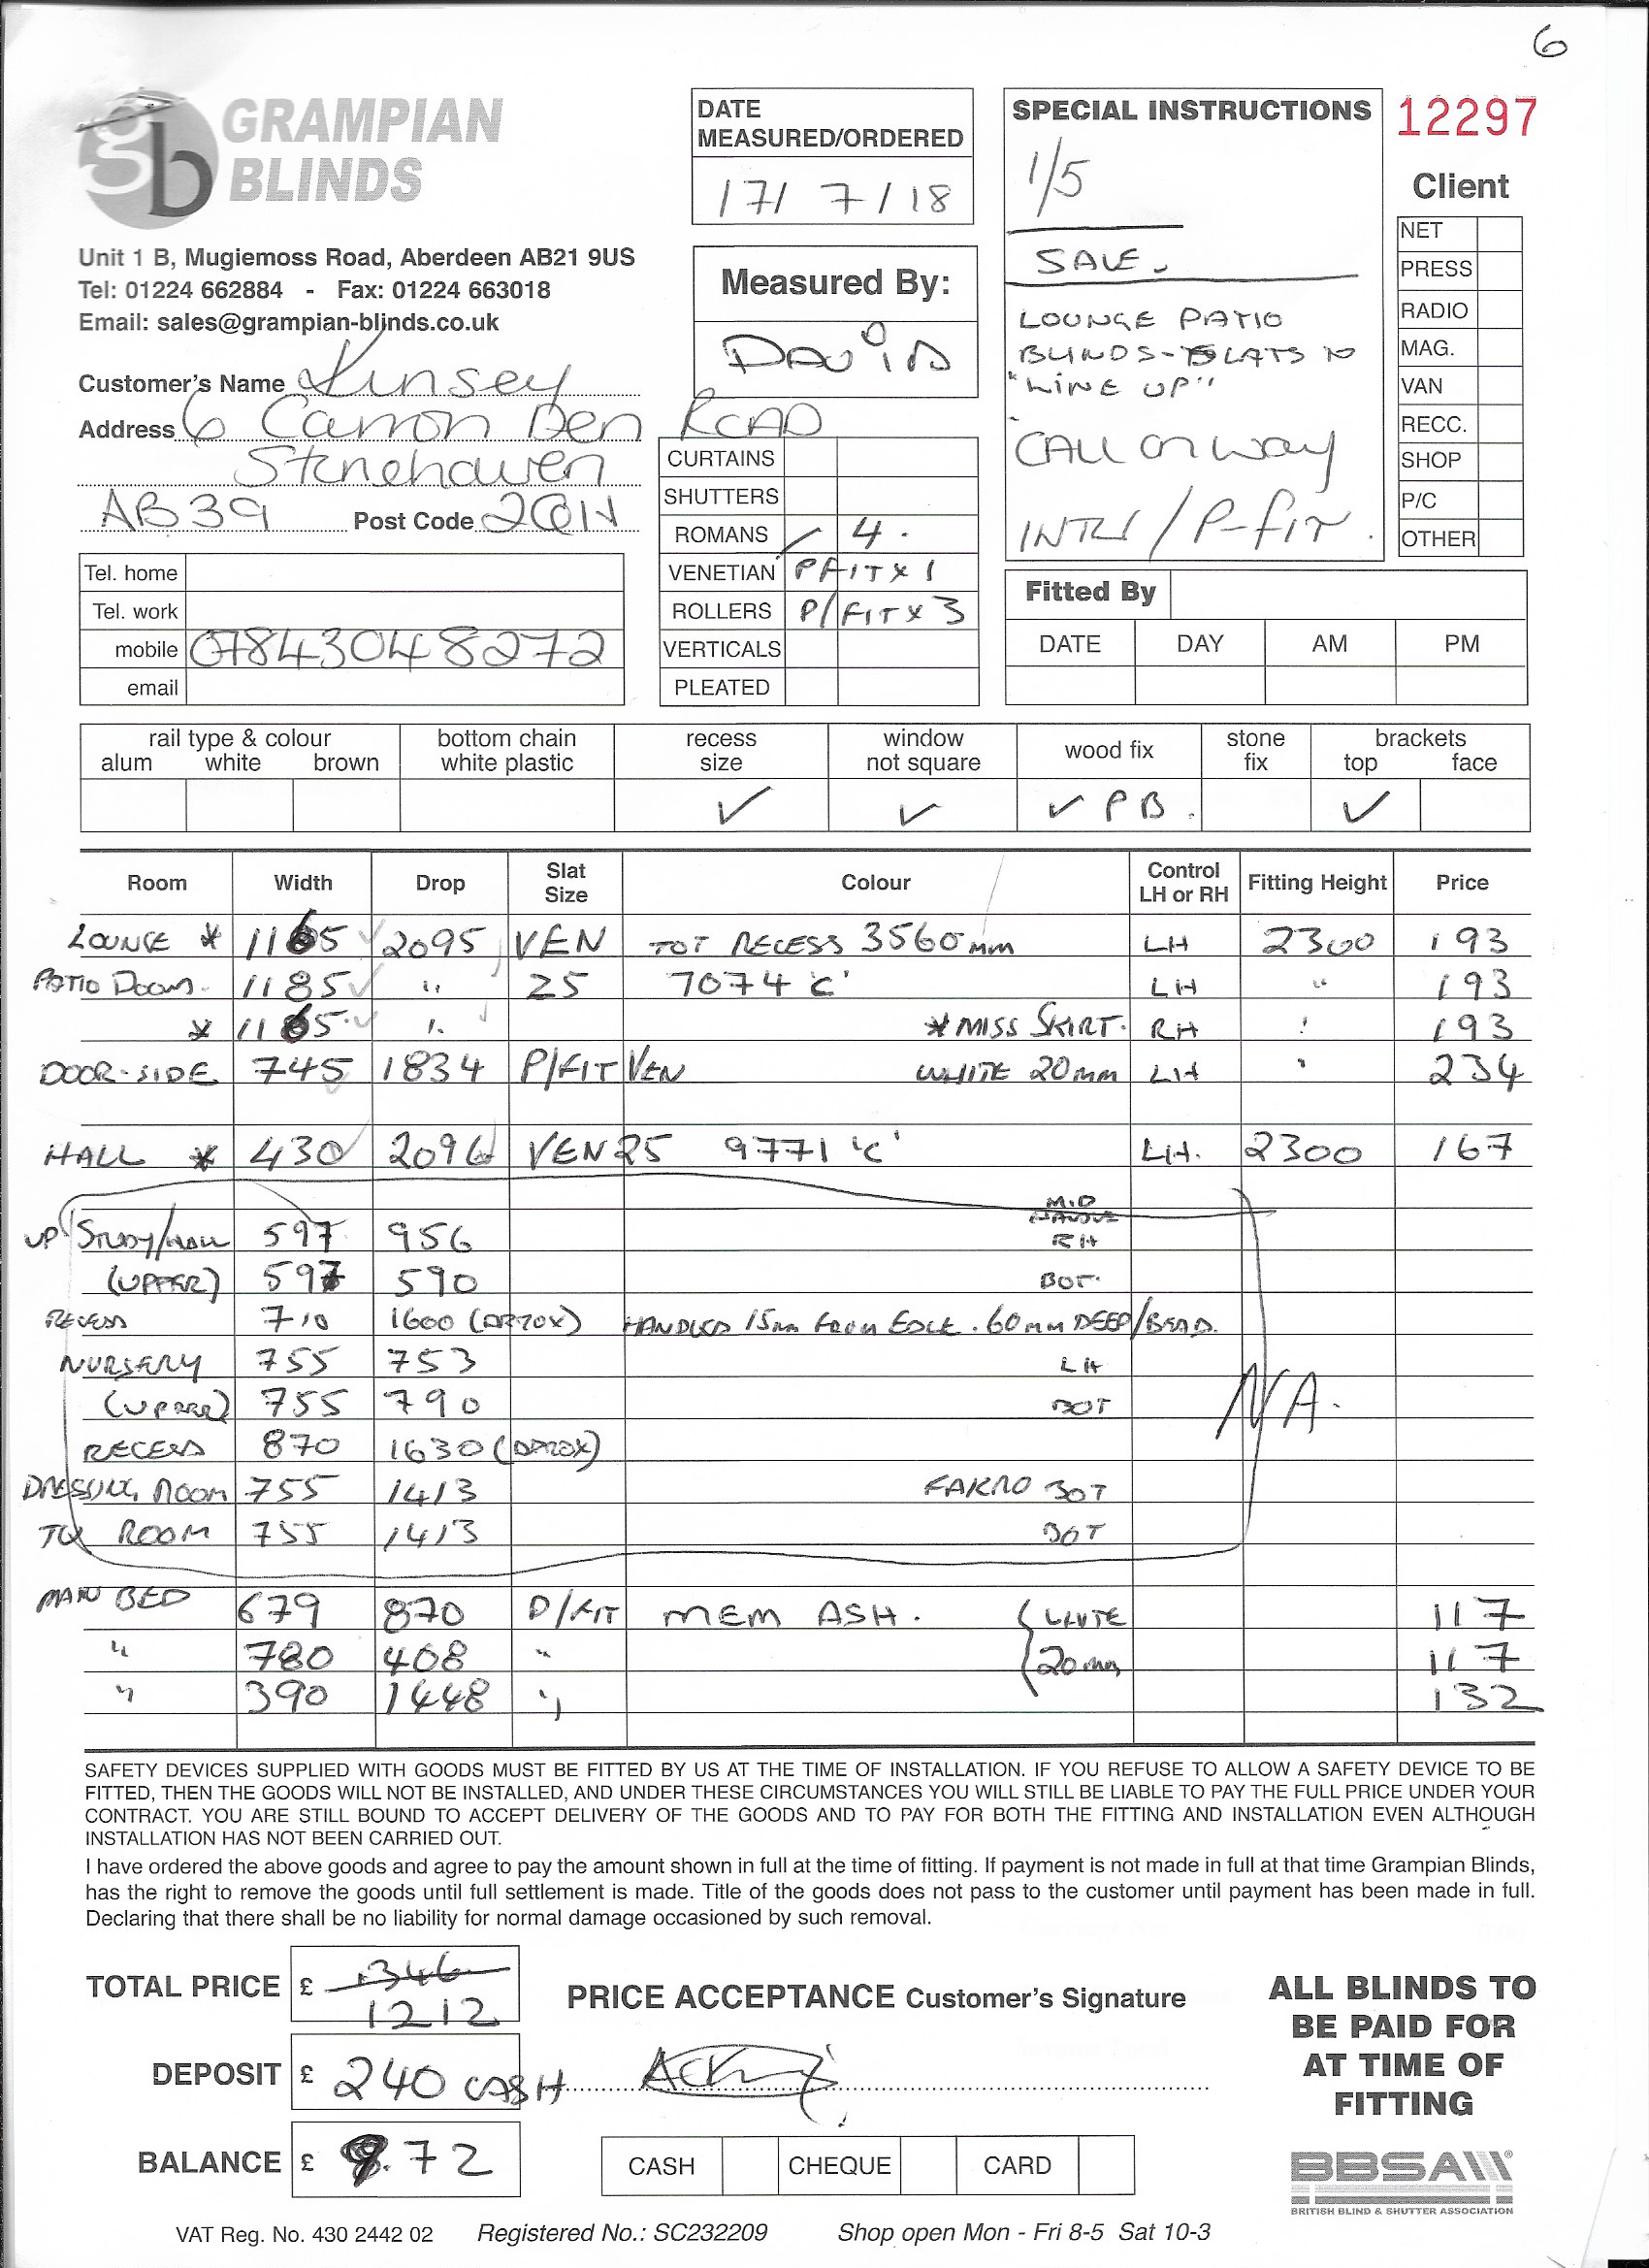 6
GRAMPIAN
BLINDS
Unit 1 B, Mugiemoss Road, Aberdeen AB21 9US
Tel: 01224 662884 - Fax: 01224 663018
Email: sales@grampian-blinds.co.uk
Customer's Name Kinsey
Address 6 Carron Den ROAD
Stonehaven
AB39 Post Code 2QH
Tel. home
Tel. work
mobile 07843048272
email
DATE
MEASURED/ORDERED
17/7/18
Measured By:
DAVID
CURTAINS
SHUTTERS
ROMANS 4.
VENETIAN PFIT x 1
ROLLERS P/FIT x 3
VERTICALS
PLEATED
SPECIAL INSTRUCTIONS
1/5
SALE.
LOUNGE PATIO
BLINDS - SLATS TO
"LINE UP"
CALL ON WAY
INTU / P-FIT.
12297
Client
NET
PRESS
RADIO
MAG.
VAN
RECC.
SHOP
P/C
OTHER
Fitted By
DATE DAY AM PM
rail type & colour bottom chain recess window wood fix stone brackets
alum white brown white plastic size not square fix top face
✓ ✓ ✓ PB. ✓
Room Width Drop Slat Size Colour Control LH or RH Fitting Height Price
LOUNGE * 1165 2095 VEN TOT RECESS 3560mm LH 2300 193
PATIO DOORS. 1185 " 25 7074 'C' LH " 193
* 1165 " *MISS SKIRT. RH " 193
DOOR-SIDE 745 1834 P/FIT VEN WHITE 20mm LH " 234
HALL * 430 2096 VEN 25 9771 'C' LH. 2300 167
UP STUDY/HALL 597 956 RH
(UPPER) 597 590 BOT.
RECESS 710 1600 (APPROX) HANDLES 15mm FROM EDGE. 60mm DEEP/BEAD.
NURSERY 755 753 LH
(UPPER) 755 790 BOT
N/A.
RECESS 870 1630 (APPROX)
DRESSING ROOM 755 1413 FAKRO BOT
TV ROOM 755 1413 BOT
MAIN BED 679 870 P/FIT MEM ASH. WHITE 117
" 780 408 " 20mm 117
" 390 1448 " 132
SAFETY DEVICES SUPPLIED WITH GOODS MUST BE FITTED BY US AT THE TIME OF INSTALLATION. IF YOU REFUSE TO ALLOW A SAFETY DEVICE TO BE
FITTED, THEN THE GOODS WILL NOT BE INSTALLED, AND UNDER THESE CIRCUMSTANCES YOU WILL STILL BE LIABLE TO PAY THE FULL PRICE UNDER YOUR
CONTRACT. YOU ARE STILL BOUND TO ACCEPT DELIVERY OF THE GOODS AND TO PAY FOR BOTH THE FITTING AND INSTALLATION EVEN ALTHOUGH
INSTALLATION HAS NOT BEEN CARRIED OUT.
I have ordered the above goods and agree to pay the amount shown in full at the time of fitting. If payment is not made in full at that time Grampian Blinds,
has the right to remove the goods until full settlement is made. Title of the goods does not pass to the customer until payment has been made in full.
Declaring that there shall be no liability for normal damage occasioned by such removal.
TOTAL PRICE £ 1346
1212
PRICE ACCEPTANCE Customer's Signature
DEPOSIT £ 240 CASH
BALANCE £ 972
CASH CHEQUE CARD
ALL BLINDS TO
BE PAID FOR
AT TIME OF
FITTING
BBSA
BRITISH BLIND & SHUTTER ASSOCIATION
VAT Reg. No. 430 2442 02 Registered No.: SC232209 Shop open Mon - Fri 8-5 Sat 10-3